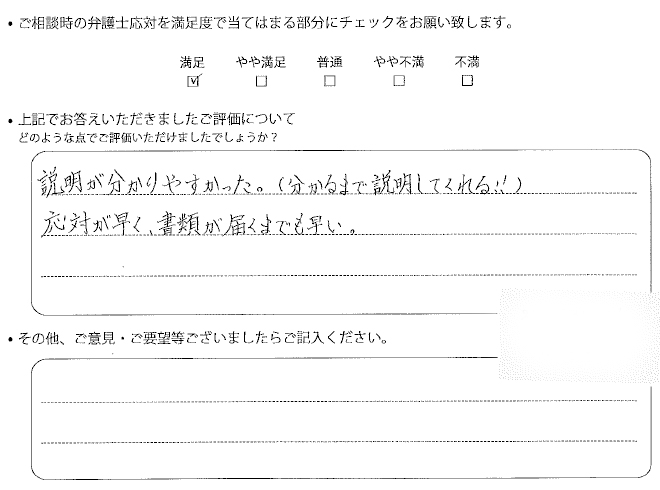 • ご相談時の弁護士応対を満足度で当てはまる部分にチェックをお願い致します。
満足 やや満足 普通 やや不満 不満
☑ ☐ ☐ ☐ ☐
• 上記でお答えいただきましたご評価について
どのような点でご評価いただけましたでしょうか？
説明が分かりやすかった。(分かるまで説明してくれる!!)
応対が早く、書類が届くまでも早い。
• その他、ご意見・ご要望等ございましたらご記入ください。